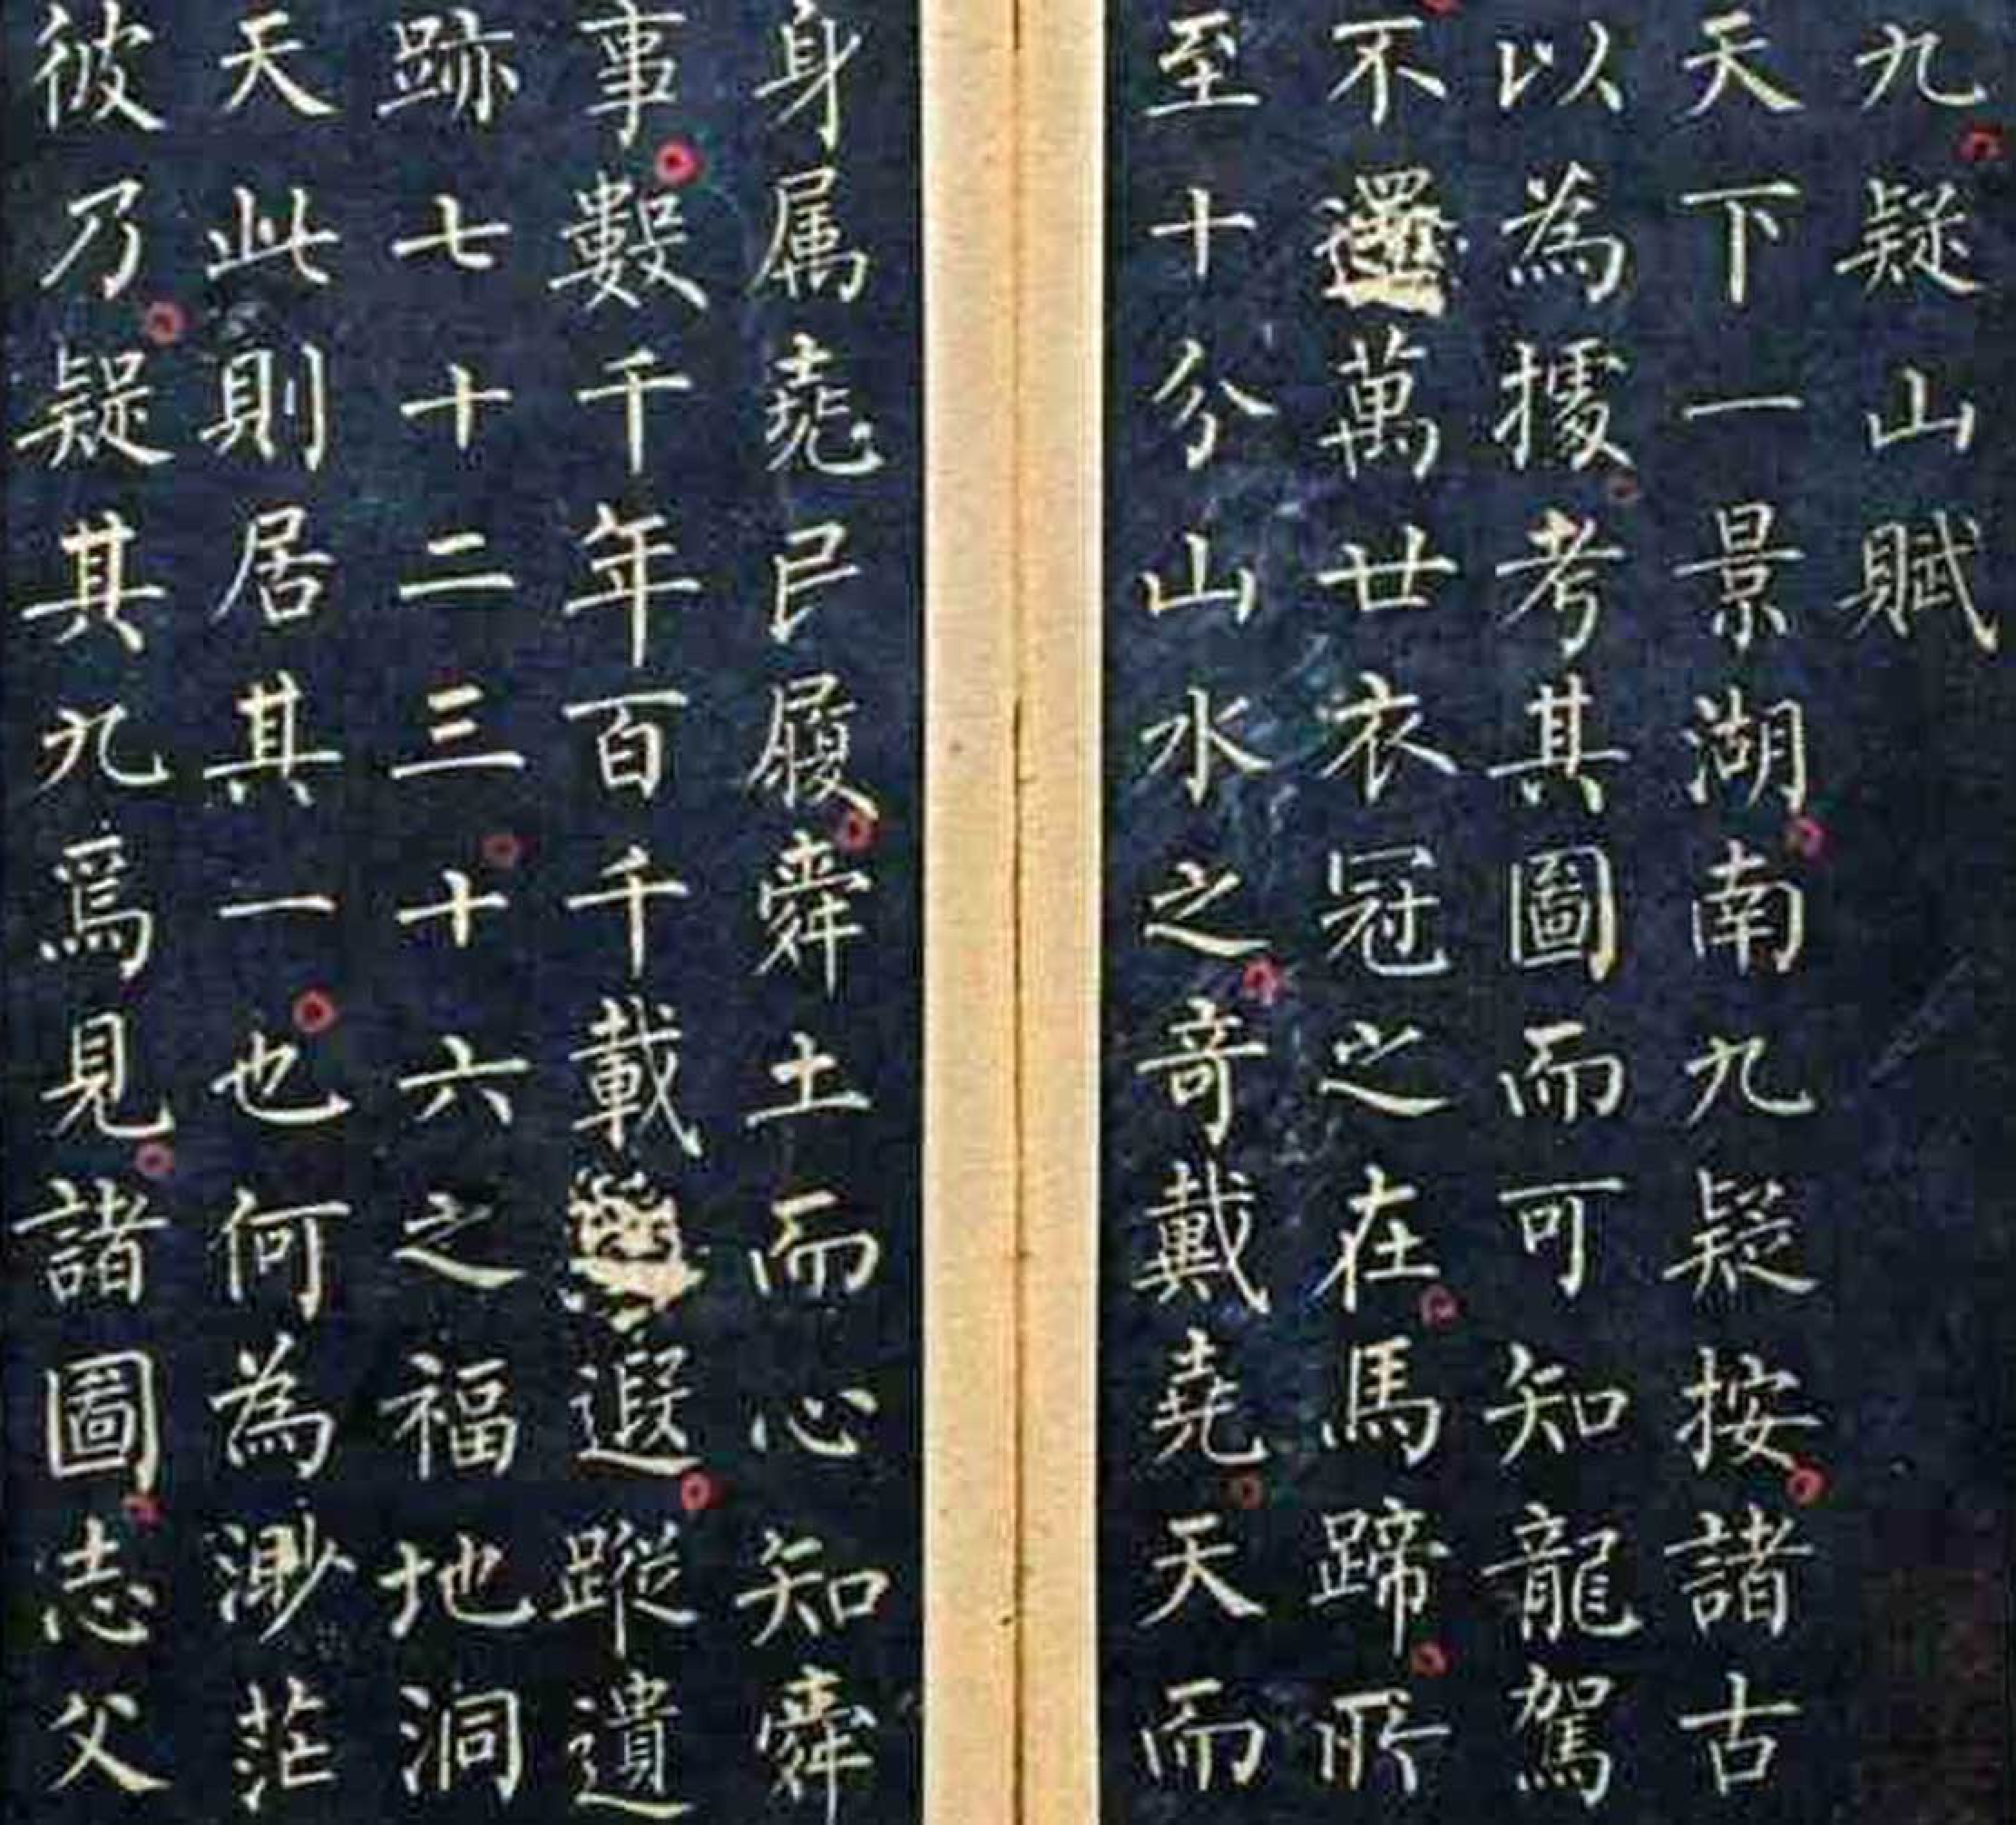 九疑山賦
天下一景湖南九疑按諸古
以為據考其圖而可知龍駕
不還萬廿衣冠之之在馬蹄所
至十分山水之奇戴堯天而
身属堯已履舜土而心知舜
事數千年百千載遐蹤遺
跡七十二三十六之福地洞
天此則居其一也何為渺茫
彼乃疑其九焉見諸圖志父